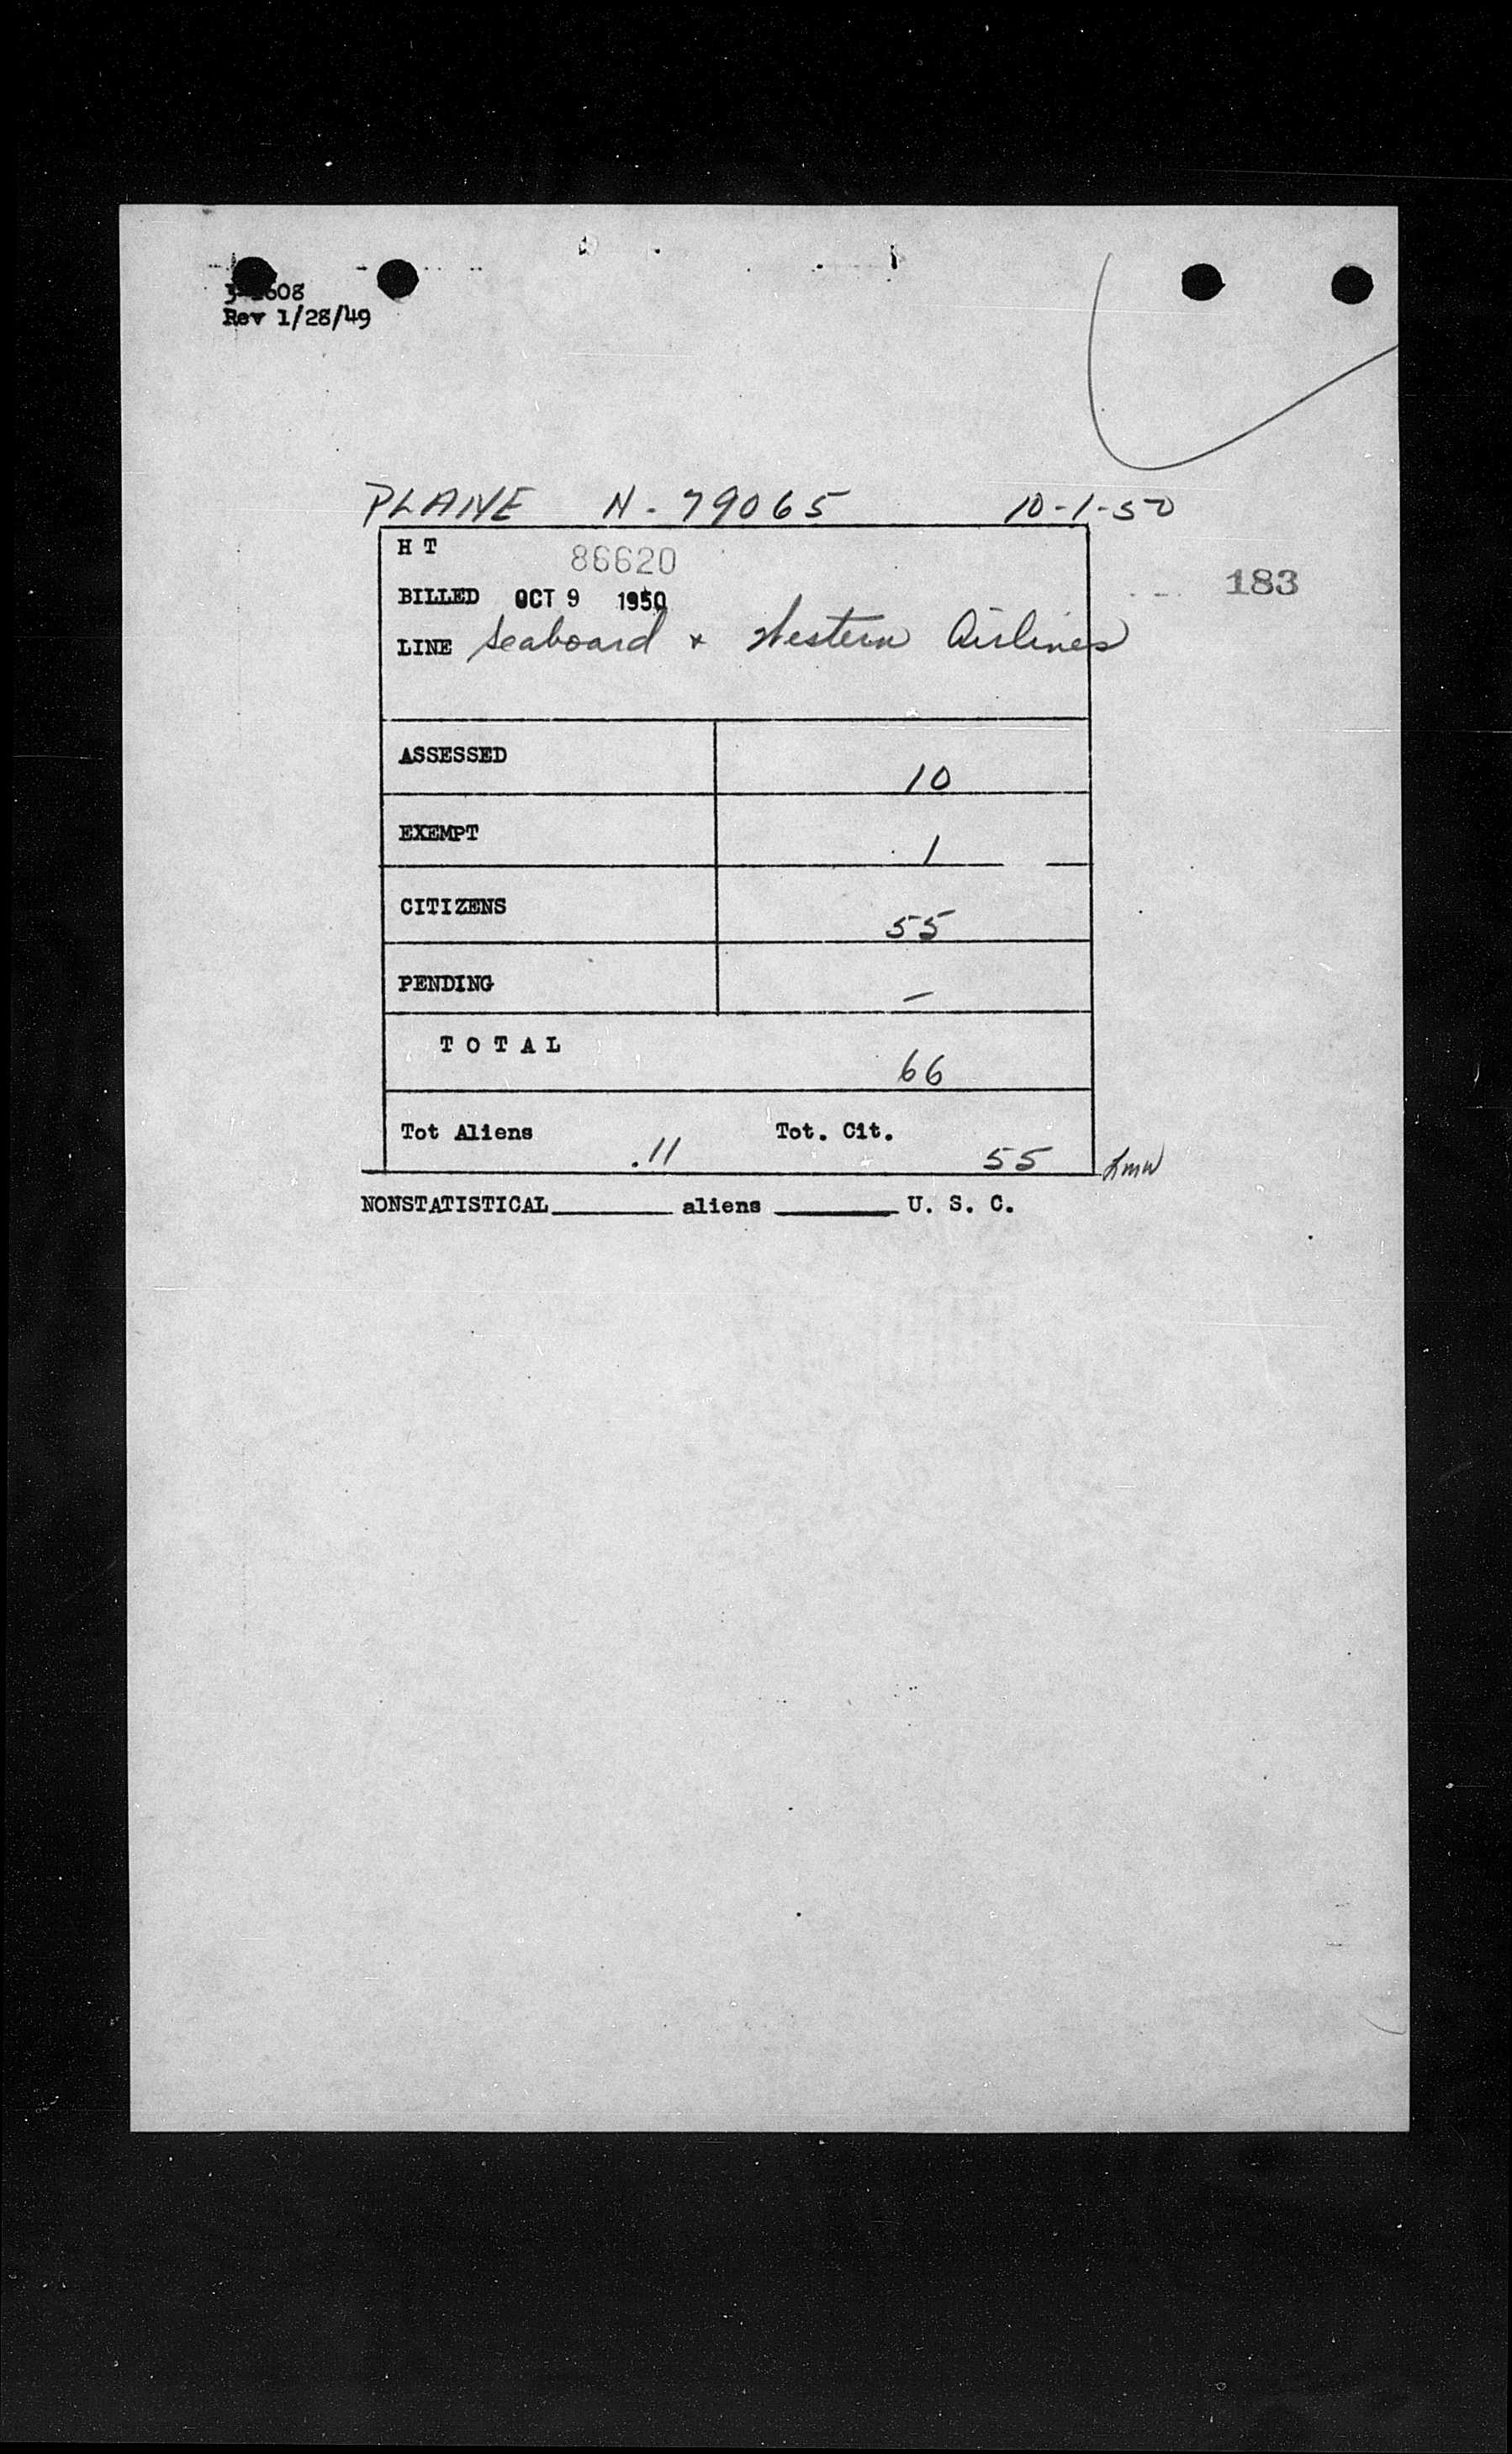 Rev 1/28/49
PLANE N-79065 10-1-50
H T 86620
183
BILLED OCT 9 1950
LINE Seaboard & Western Airlines
ASSESSED 10
EXEMPT 1
CITIZENS 55
PENDING —
T O T A L 66
Tot Aliens 11 Tot. Cit. 55
NONSTATISTICAL________ aliens ________ U. S. C.